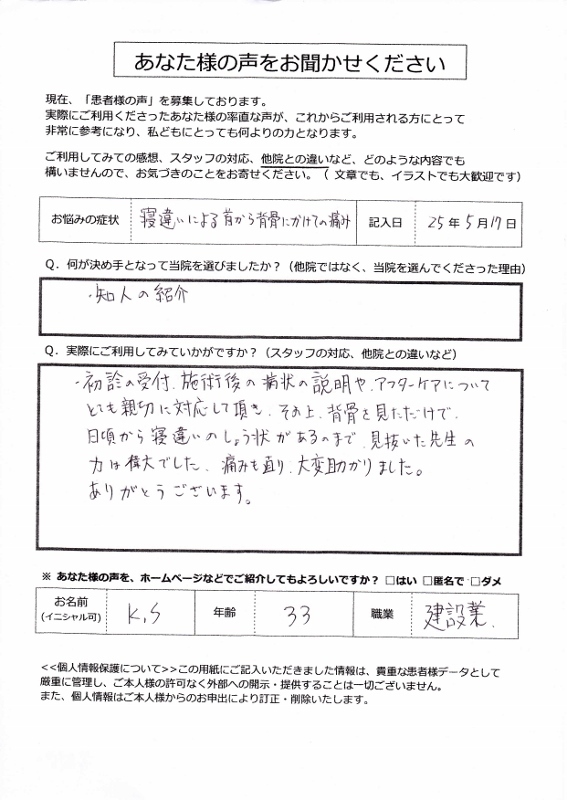 あなた様の声をお聞かせください
現在、「患者様の声」を募集しております。
実際にご利用くださったあなた様の率直な声が、これからご利用される方にとって
非常に参考になり、私どもにとっても何よりの力となります。
ご利用してみての感想、スタッフの対応、他院との違いなど、どのような内容でも
構いませんので、お気づきのことをお寄せください。（ 文章でも、イラストでも大歓迎です）
お悩みの症状 寝違いによる首から背骨にかけての痛み 記入日 25年5月17日
Q．何が決め手となって当院を選びましたか？（他院ではなく、当院を選んでくださった理由）
・知人の紹介
Q．実際にご利用してみていかがですか？（スタッフの対応、他院との違いなど）
・初診の受付、施術後の病状の説明や、アフターケアについて
とても親切に対応して頂き、その上、背骨を見ただけで、
日頃から寝違いのしょう状があるのまで、見抜いた先生の
力は偉大でした、痛みも直り、大変助かりました。
ありがとうございます。
※ あなた様の声を、ホームページなどでご紹介してもよろしいですか？ □はい □匿名で □ダメ
お名前 K,S 年齢 33 職業 建設業、
(イニシャル可)
<<個人情報保護について>>この用紙にご記入いただきました情報は、貴重な患者様データとして
厳重に管理し、ご本人様の許可なく外部への開示・提供することは一切ございません。
また、個人情報はご本人様からのお申出により訂正・削除いたします。